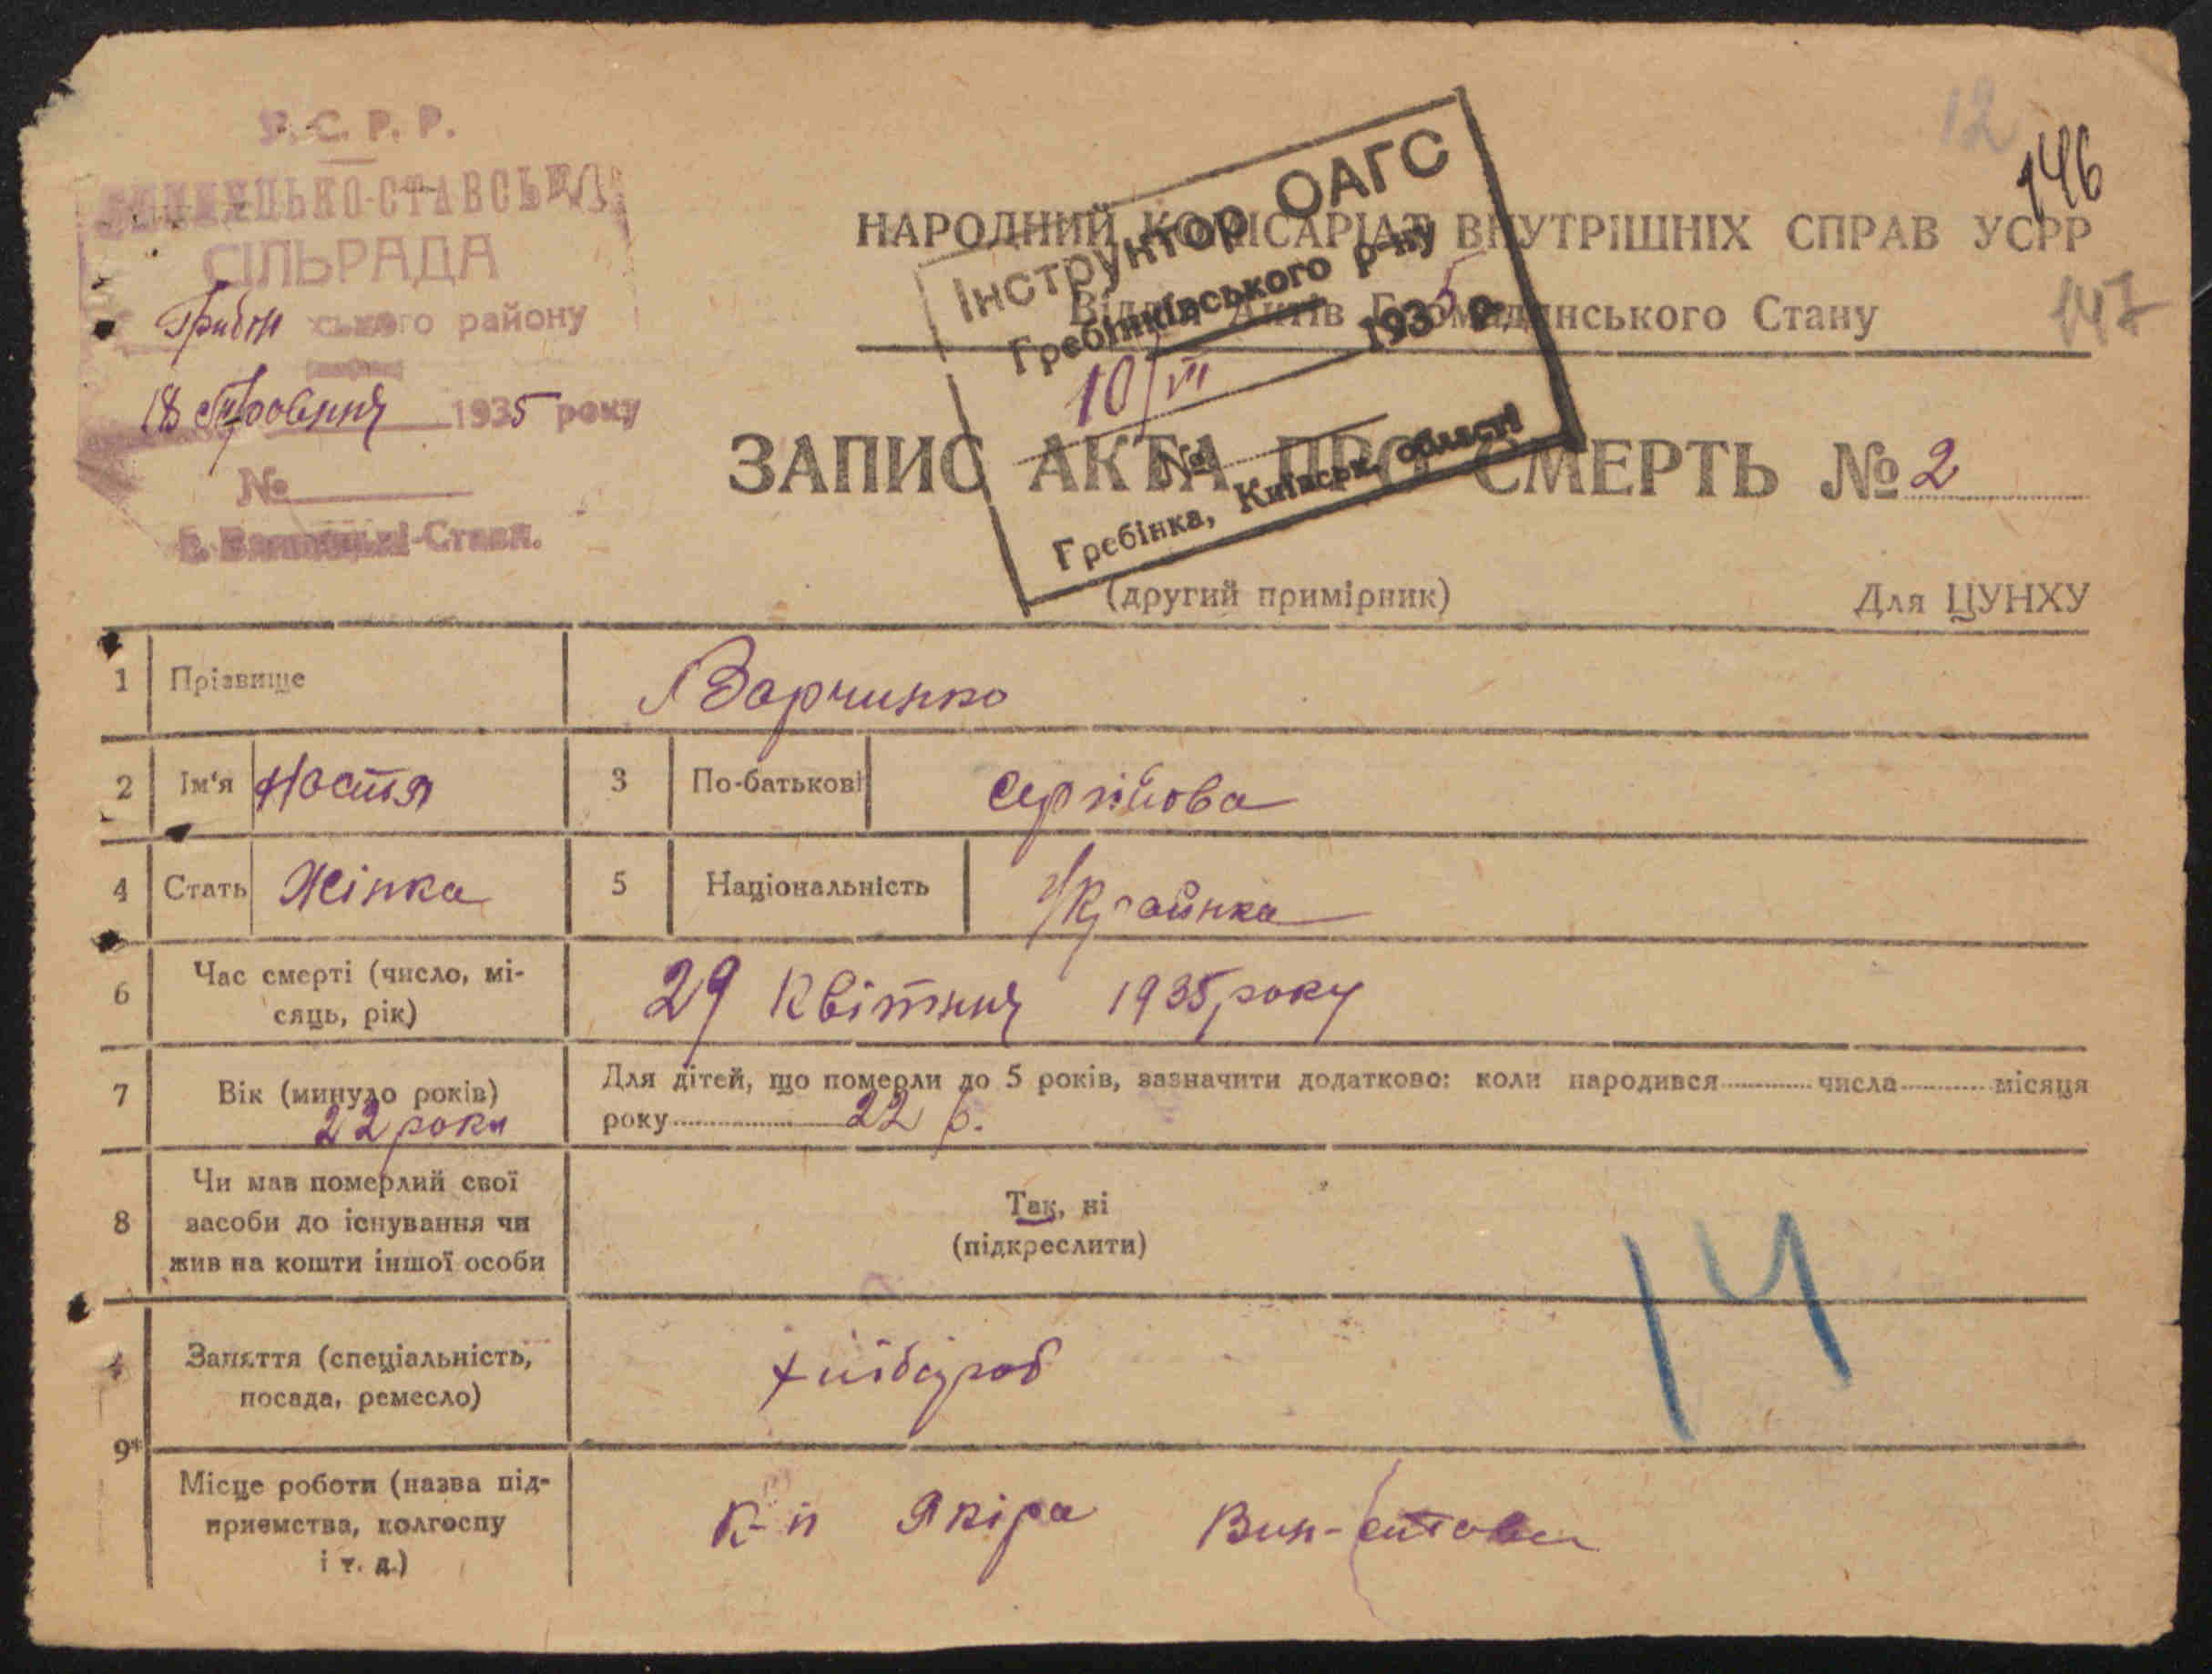 У.С.Р.Р.
СІЛЬРАДА
ського району
18 Травния 1935 року
№
-Стави.
12
146
147
НАРОДНИЙ КОМІСАРІАТ ВНУТРІШНІХ СПРАВ УСРР
Відділ Актів Громадянського Стану
Інструктор ОАГС
Гребінківського р-ну
10/VII 1935 р.
№
Гребінка, Київськ. області
ЗАПИС АКТА ПРО СМЕРТЬ № 2
(другий примірник)
Для ЦУНХУ
1 Прізвище
2 Ім'я Настя 3 По-батькові Сергійова
4 Стать Жінка 5 Національність Українка
6 Час смерті (число, мі-
сяць, рік) 29 Квітния 1935 року
7 Вік (минуло років) 22 роки
Для дітей, що померли до 5 років, зазначити додатково: коли народився числа місяця
року 22 р.
8 Чи мав померлий свої
засоби до існування чи
жив на кошти іншої особи
Так, ні
(підкреслити)
14
9* Заняття (спеціальність,
посада, ремесло)
Місце роботи (назва під-
приємства, колгоспу
і т. д.)
К-п Якіра Вин-Стави